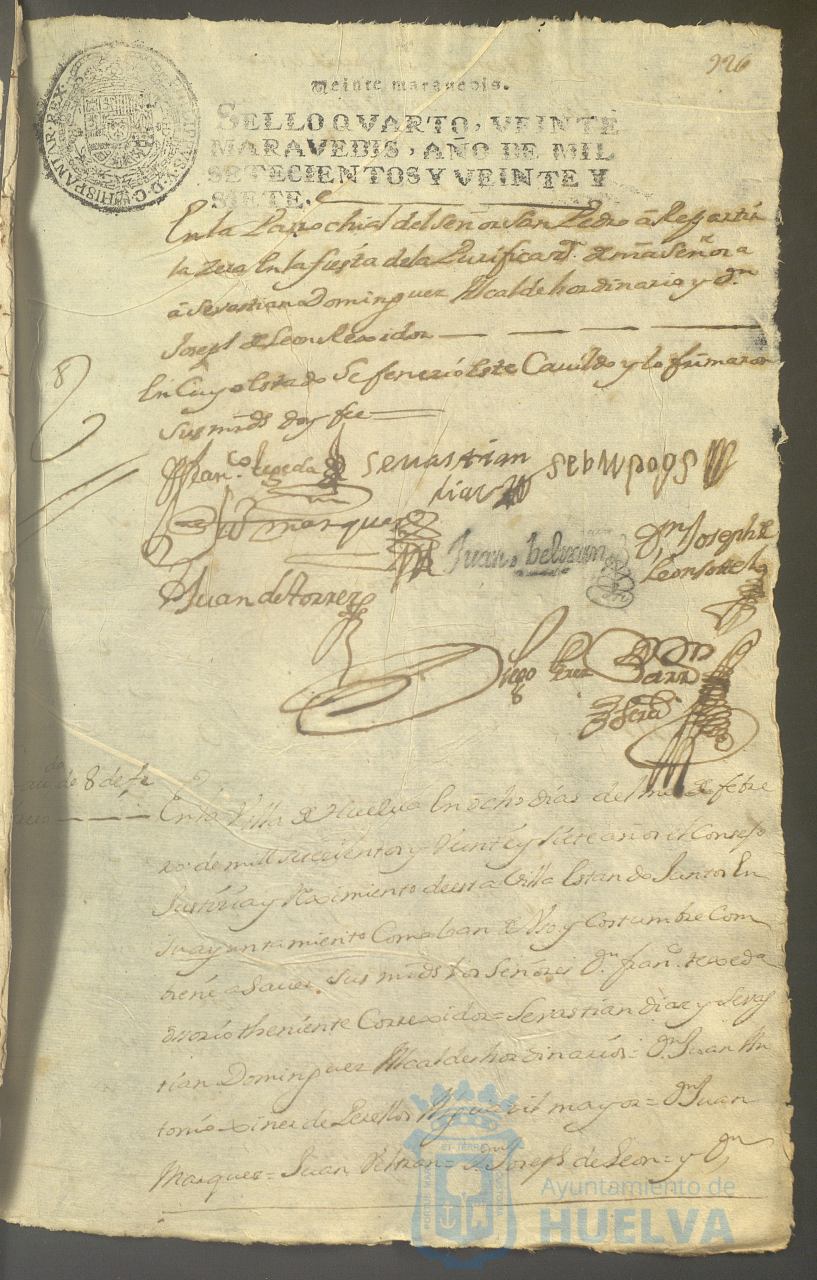 926
Veinte maravedis.
SELLO QVARTO, VEINTE
MARAVEDIS, AÑO DE MIL
SETECIENTOS Y VEINTE Y
SIETE.
HISPANIAR. REX
En la Parrochial del señor San Pedro a Repartir
la zera En la fiesta de la Purificazn. de nra Señora
a Sevastian Dominguez Alcalde hordinario y Dn
Joseph de Leon Rexidor
En Cuyo Estado Se fenezió Este Cavildo y lo firmaron
Sus mrds doy fee
Franco. texeda
Sevastian
diaz
Juan marquez
Juan beltran
Dn Joseph de
Leon
Juan de Torres
Diego Perez
8 de fe
En la Villa de Huelva En ocho dias del mes de febre
ro de mill setecientos y Veinte y siete años el Consejo
Justizia y Reximiento de esta Villa Estando Juntos En
Su ayuntamiento Como lo an de Uso y Costumbre Com
biene a Saver, Sus mrds los Señores Dn. franco. texeda
theniente Correxidor = Sevastian diaz y Sevas
tian Dominguez Alcaldes hordinarios = Dn. Juan An
tonio Alguazil mayor = Dn Juan
Marquez = Juan Veltran = Dn Joseph de Leon = y Dn
Ayuntamiento de
HUELVA